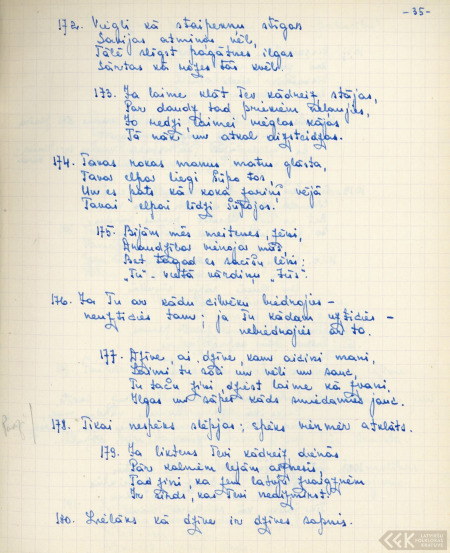 - 35 -
172. Viegli kā staipekņu stīgas
Savijas atmiņas vēl,
Tālē slīgst pagātnes ilgas
Sārtas kā rozes tās kvēl.
173. Ja laime klāt Tev kādreiz stājas,
Par daudz tad priekiem neļaujies,
Jo redzi, laimei vieglas kājas
Tā nāk, un atkal aizsteidzas.
174. Tavas rokas manus matus glāsta,
Tavas elpas liegi šūpo tos,
Un es pats kā koka zariņš vējā
Tavai elpai līdzi šūpojos.
175. Bijām mēs meitenes, zēni,
Draudzības mācīja
Bet tagad es sacīšu lēni:
"Tu" - vietā vārdiņu "Jūs".
176. Ja Tu ar kādu cilvēku biedrojies -
neuzticies tam; ja Tu kādam uzticies -
nebiedrojies ar to.
177. Dzīve, ai, dzīve, kam aicini mani,
Laimi tu sōli un vēli un sauc,
Tu taču zini, dziest laime kā zvani.
Ilgas un sāpes kāds smiedamies jauc.
178. Tikai nespēks slēpjas; spēks vienmēr atklāts.
179. Ja liktens Tevi kādreiz dienās
Pār kalniem lejām aiznesīs,
Tad zini, ka zem Latvijas zvaigznēm
Ir sirds, kas Tevi neaizmirst.
180. Lielāks kā dzīve ir dzīves sapnis.
LATVIEŠU
FOLKLORAS
KRĀTUVE